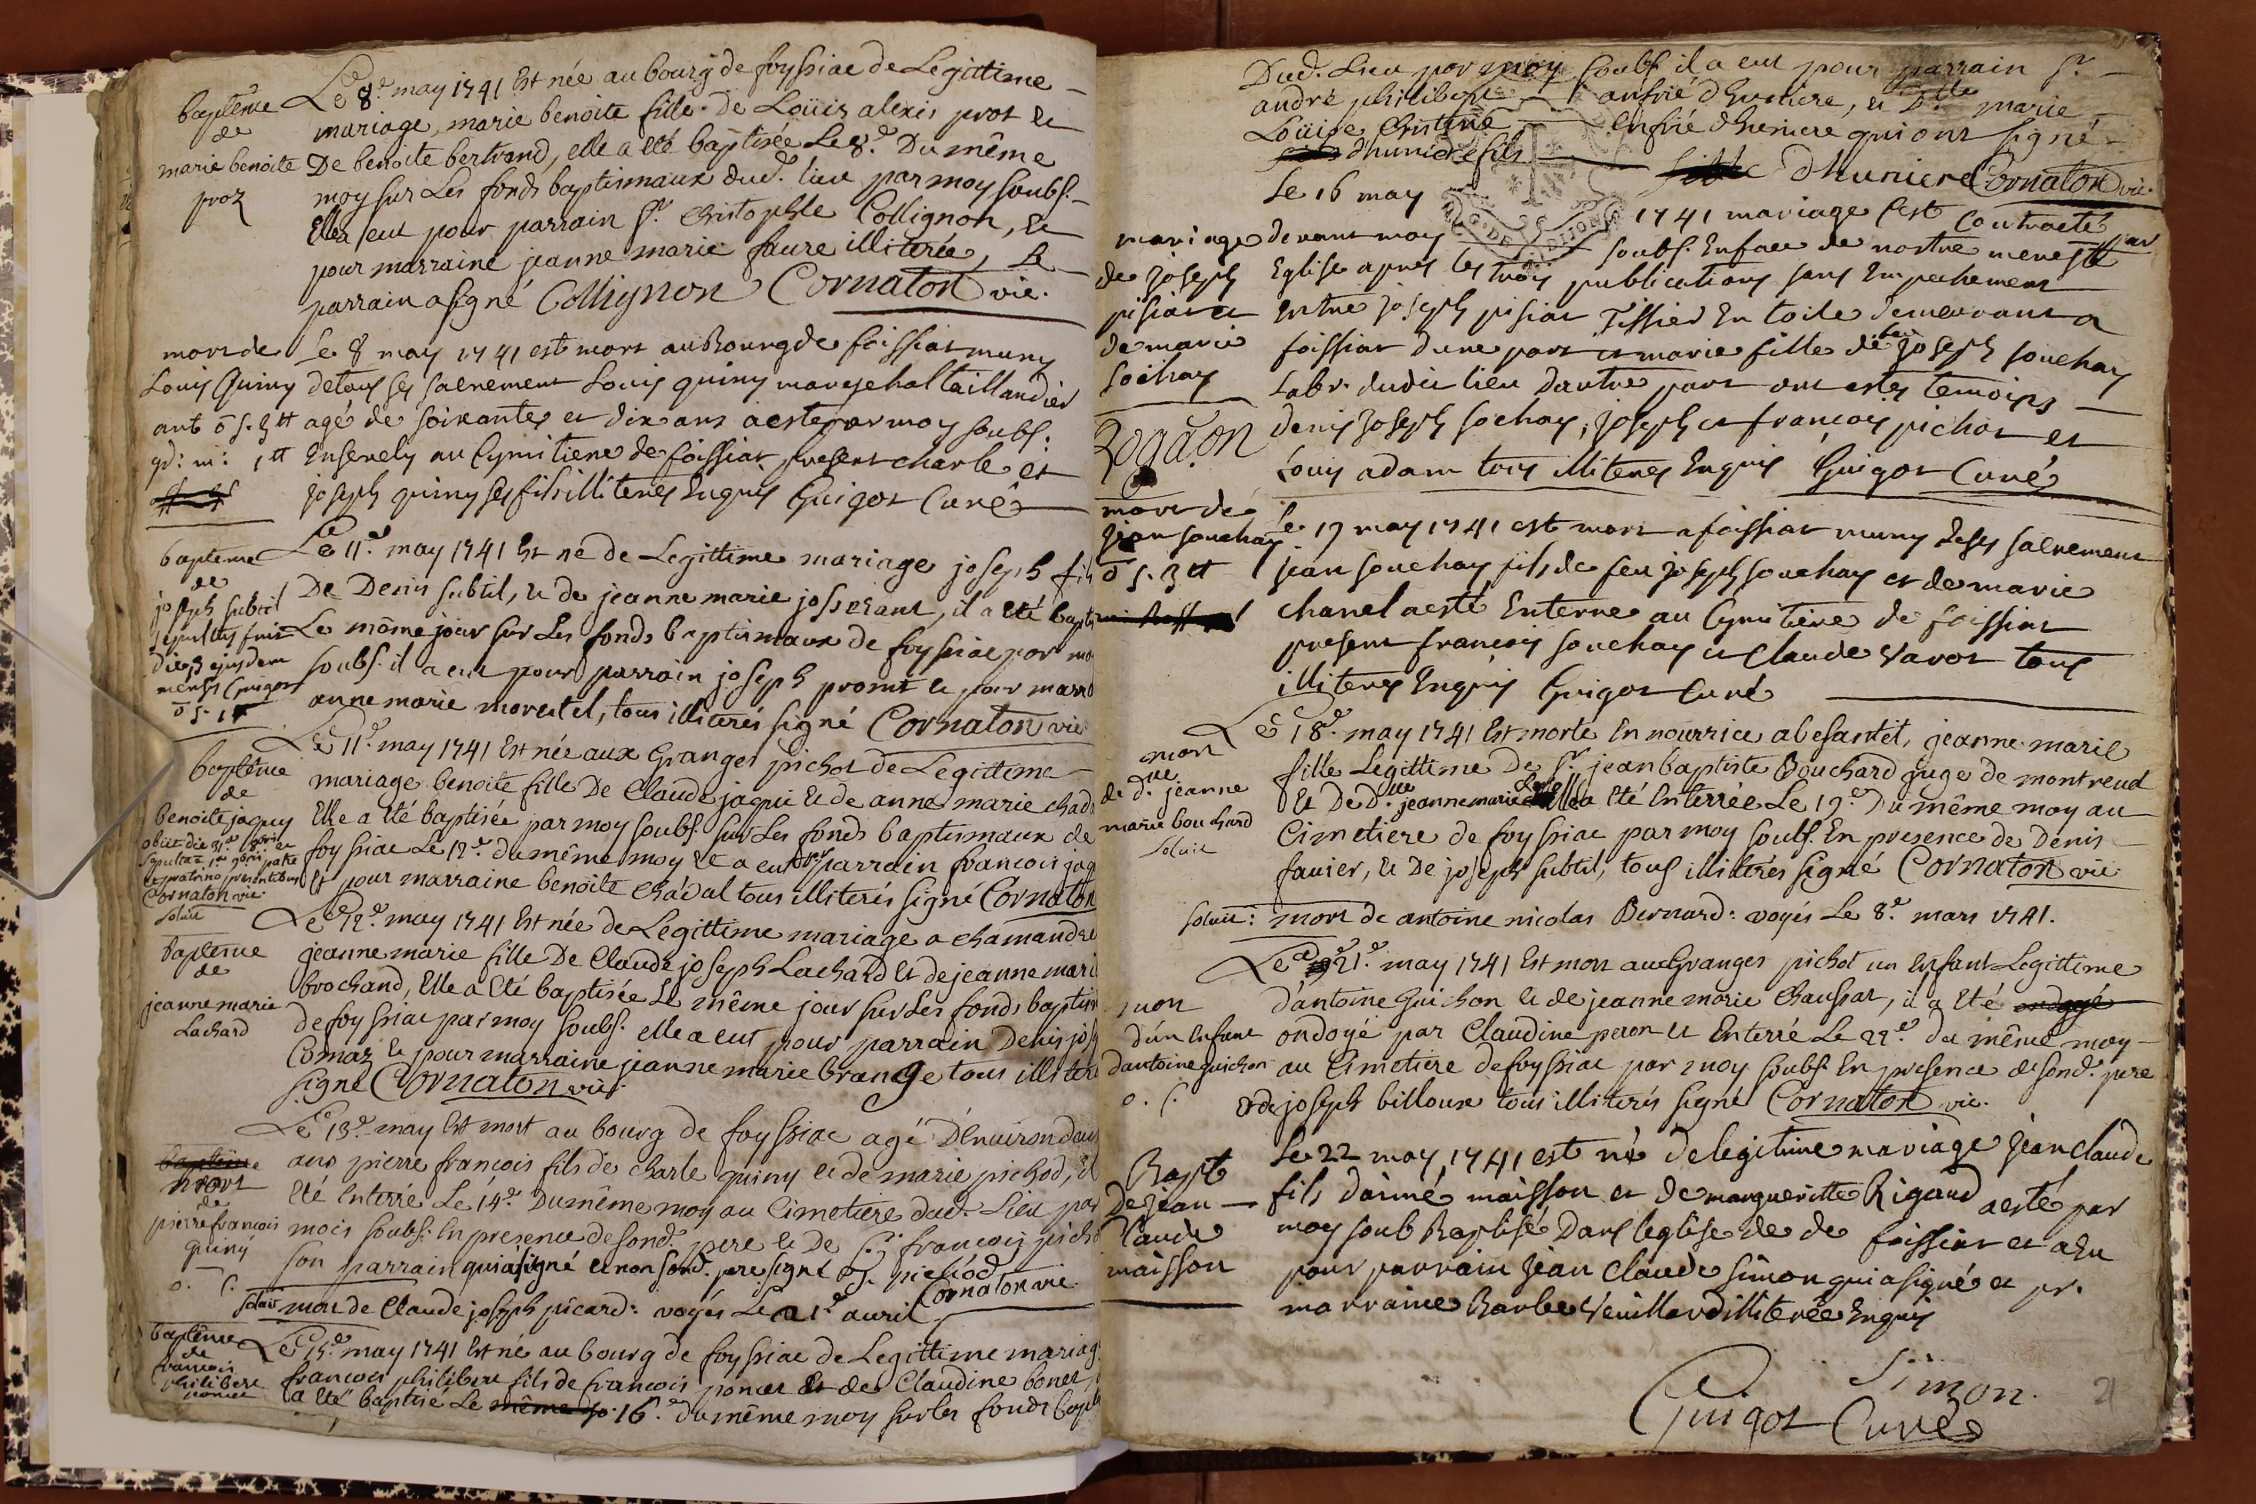 baptême
de
marie benoite
proz
Le 8.e may 1741 Est née au bourg de foyssiac de Legittime
mariage, marie benoite fille de Loüis alexis prost et
De benoite bertrand, elle a été baptisée Le 8.e Du même
moy sur Les fonds baptismaux dud. lieu par moy soubs.
Elle a eut pour parrain Sr. Christophle Collignon, et
pour marraine jeanne marie faure illiterée, Le
parrain a signé Collignon Cornaton vic.
mort de
Louis Quiny
Le 8 may 1741 est mort au Bourg de foissiat muny
de tous ses sacrement Louis quiny mareschal taillandier
agé de soixante et dix ans a esté par moy soubs.
Ensevely au Cymitiere de foissiat present charle et
joseph quiny ses fils illiteres Enquis Guigot Curé
bapteme
de
joseph subtil
sepultus fuit
die 3 ejusdem
mensis Guigot
Le 11.e may 1741 Est né de Legittime mariage joseph fils
De Denis subtil, et de jeanne marie josserant, il a été bapti
Le même jour sur Les fonds baptismaux de foyssiac par mo
soubs. il a eut pour parrain joseph promt et pour marra
anne marie morestel, tous illiterés signé Cornaton vic
baptême
de
benoite jaquy
Cornaton vic
solvit
Le 11.e may 1741 Est née aux Granges pichot de Legittime
mariage benoite fille De Claude jaqui et de anne marie chad
Elle a été baptisée par moy soubs. sur Les fonds baptismaux de
foyssiac Le 12.e du même moy et a eut pr parrain francois jaq
Et pour marraine benoite Chadal tous illiterés signé Cornaton
baptême
de
jeanne marie
Lachard
Le 12.e may 1741 Est née de Legittime mariage a chamandre
jeanne marie fille De Claude joseph Lachard Et de jeanne mari
brochand, Elle a été baptisée Le même jour sur Les fonds baptis
de foyssiac par moy soubs. elle a eut pour parrain Denis jos
Comaz et pour marraine jeanne marie brange tous illitere
signé Cornaton vic.
mort
de
pierre francois
quiny
Le 13.e may Est mort au bourg de foyssiac agé D'Environ deux
ans pierre francois fils de charle quiny et de marie pichod, il
Eté Enterré Le 14.e Du même moy au Cimetiere dud. Lieu par
mois soubs. En presence de sond. pere et De Sr. francois picho
son parrain qui a signé et non sond. pere signé pichod
Cornaton vic
solvit mort de Claude joseph picard: voyés Le 21.e avril
baptême
de
francois
philibere
poncet
Le 15.e may 1741 Est né au bourg de foyssiac de Legittime mariag
francois philibere fils de francois poncet et de Claudine bonet,
a été baptisé Le même jo. 16.e du même moy sur les fonds bapt
Dud. Lieu par moy soubs. il a eut pour parrain Sr.
andré philibert anfrié dhuniere, et Dlle marie
Loüise Christine enfrié dhuniere qui ont signé
dhuniere fils dhuniere Cornaton vic
mariage
de joseph
pisiat et
de marie
sochay
Le 16 may 1741 mariage sest contracté
devant moy soubs. En face de nostre mere Ste
Eglise apres les trois publications sans Empechement
entre joseph pisiat Tissier En toile demeurant a
foissiat dune part et marie fille de feu joseph souchay
Labr. dudit lieu dautre part ont estés temoins
denis joseph sochay, joseph et francois pichot et
Louis adam tous illiteres Enquis Guigot Curé
mort de
jean souchay
Le 17 may 1741 est mort a foissiat muny de ses sacrement
jean souchay fils de feu joseph souchay et de marie
chanel a esté Enterré au Cymitiere de foissiat
present francois souchay et Claude Varot tous
illiteres Enquis Guigot Curé
mort
de dlle jeanne
marie bouchard
solvit
Le 18.e may 1741 Est morte En nourrice a besantet, jeanne marie
fille Legittime De Sr. jean baptiste Bouchard juge de montreud
Et De Dlle jeanne marie a Eté Enterrée Le 19.e Du même moy au
Cimetiere de foyssiac par moy soubs. En presence de Denis
favier, et De joseph subtil, tous illiterés signé Cornaton vic
solvit: mort de antoine nicolas Bernard: voyés Le 8.e mars 1741.
mort
d'un Enfant
dantoine guichon
Le 21.e may 1741 Est mort aux Granges pichot un Enfant Legittime
d'antoine Guichon et de jeanne marie Chaussat, il a Eté ondoyé
ondoyé par Claudine peron et Enterré Le 22.e du même moy
au Cimetiere de foyssiac par moy soubs. En presence de sond. pere
et de joseph billoux tous illiterés signé Cornaton vic.
Bapt
De jean
Claude
maisson
Le 22 may 1741 est né de legitime mariage jean claude
fils daimé maisson et de margueritte Rigaud a esté par
moy soub Baptisé Dans leglise de de foissiat et a Eu
pour parrain jean Claude simon qui a signé et pr.
marraine Barbe Veuillard illiterée Enquis
Simon.
Guigot Curé
21